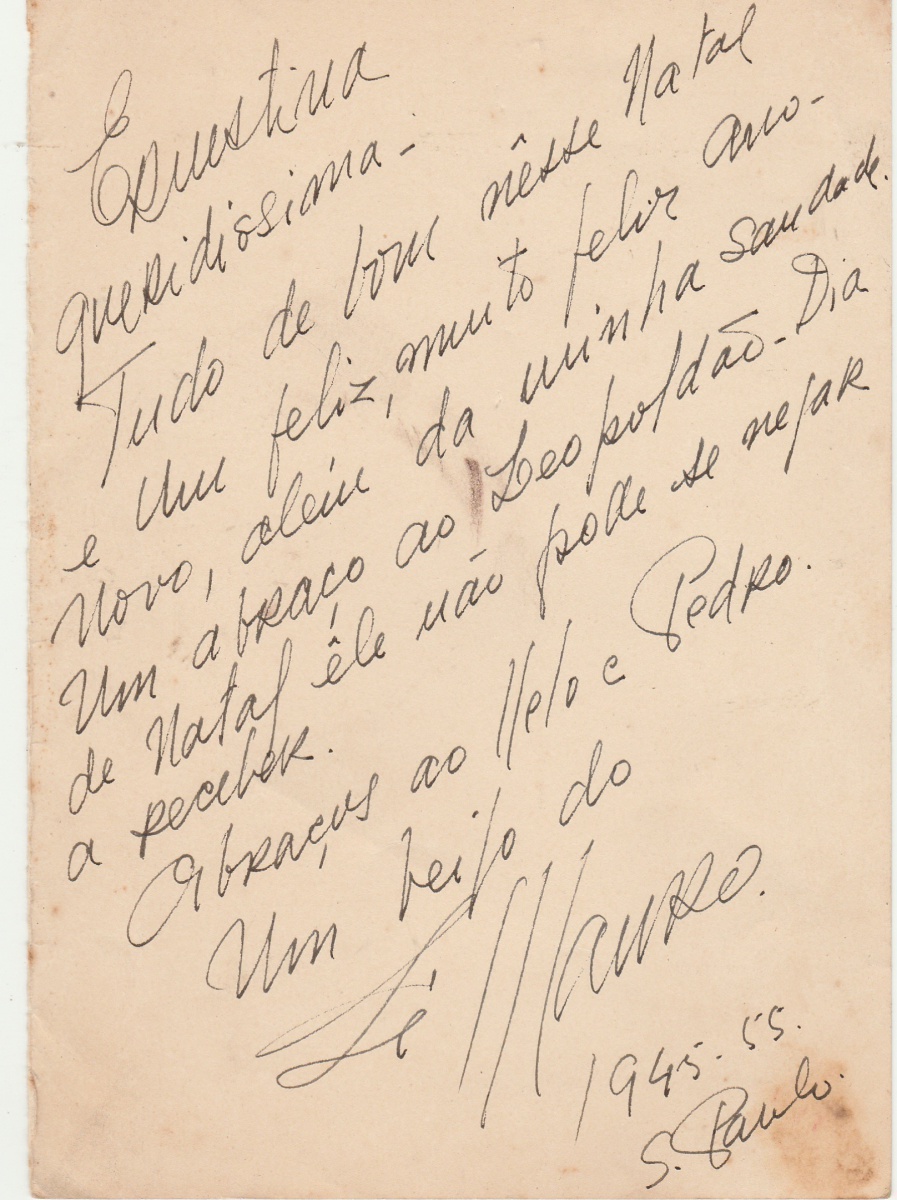 Ernestina
queridissima -
Tudo de bom nêsse Natal
e um feliz, muito feliz Ano-
Novo, além da minha saudade.
Um abraço ao Leopoldão - Dia
de Natal êle não pode se negar
a receber.
Abraços ao Helo e Pedro.
Um beijo do
Zé Mauro.
1945-55.
S. Paulo.